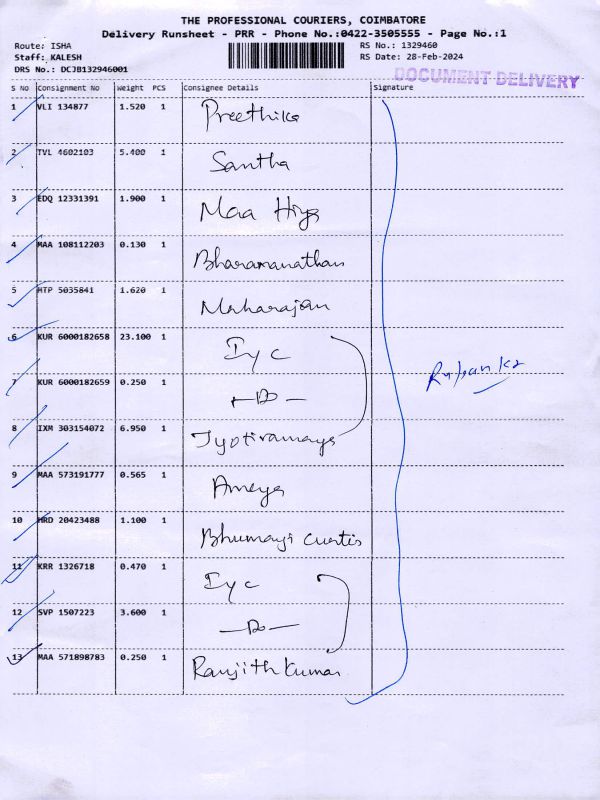 THE PROFESSIONAL COURIERS, COIMBATORE
Delivery Runsheet - PRR - Phone No.:0422-3505555 - Page No.:1
Route: ISHA
Staff: KALESH
DRS No.: DCJB132946001
RS No.: 1329460
RS Date: 28-Feb-2024
DOCUMENT DELIVERY
S No Consignment No Weight PCS Consignee Details Signature
1 VLI 134877 1.520 1 Preethika
2 TVL 4602103 5.400 1 Santha
3 EDQ 12331391 1.900 1 Maa
4 MAA 108112203 0.130 1 Bharamanathan
5 HTP 5035841 1.620 1 Maharajan
6 KUR 6000182658 23.100 1 Iyc
7 KUR 6000182659 0.250 1 —Do—
8 IXM 303154072 6.950 1 Jyotiramaya
9 MAA 573191777 0.565 1 Ameya
10 HRD 20423488 1.100 1 Bhumayi Curtis
11 KRR 1326718 0.470 1 Iyc
12 SVP 1507223 3.600 1 —Do—
13 MAA 571898783 0.250 1 Ranjith Kumar